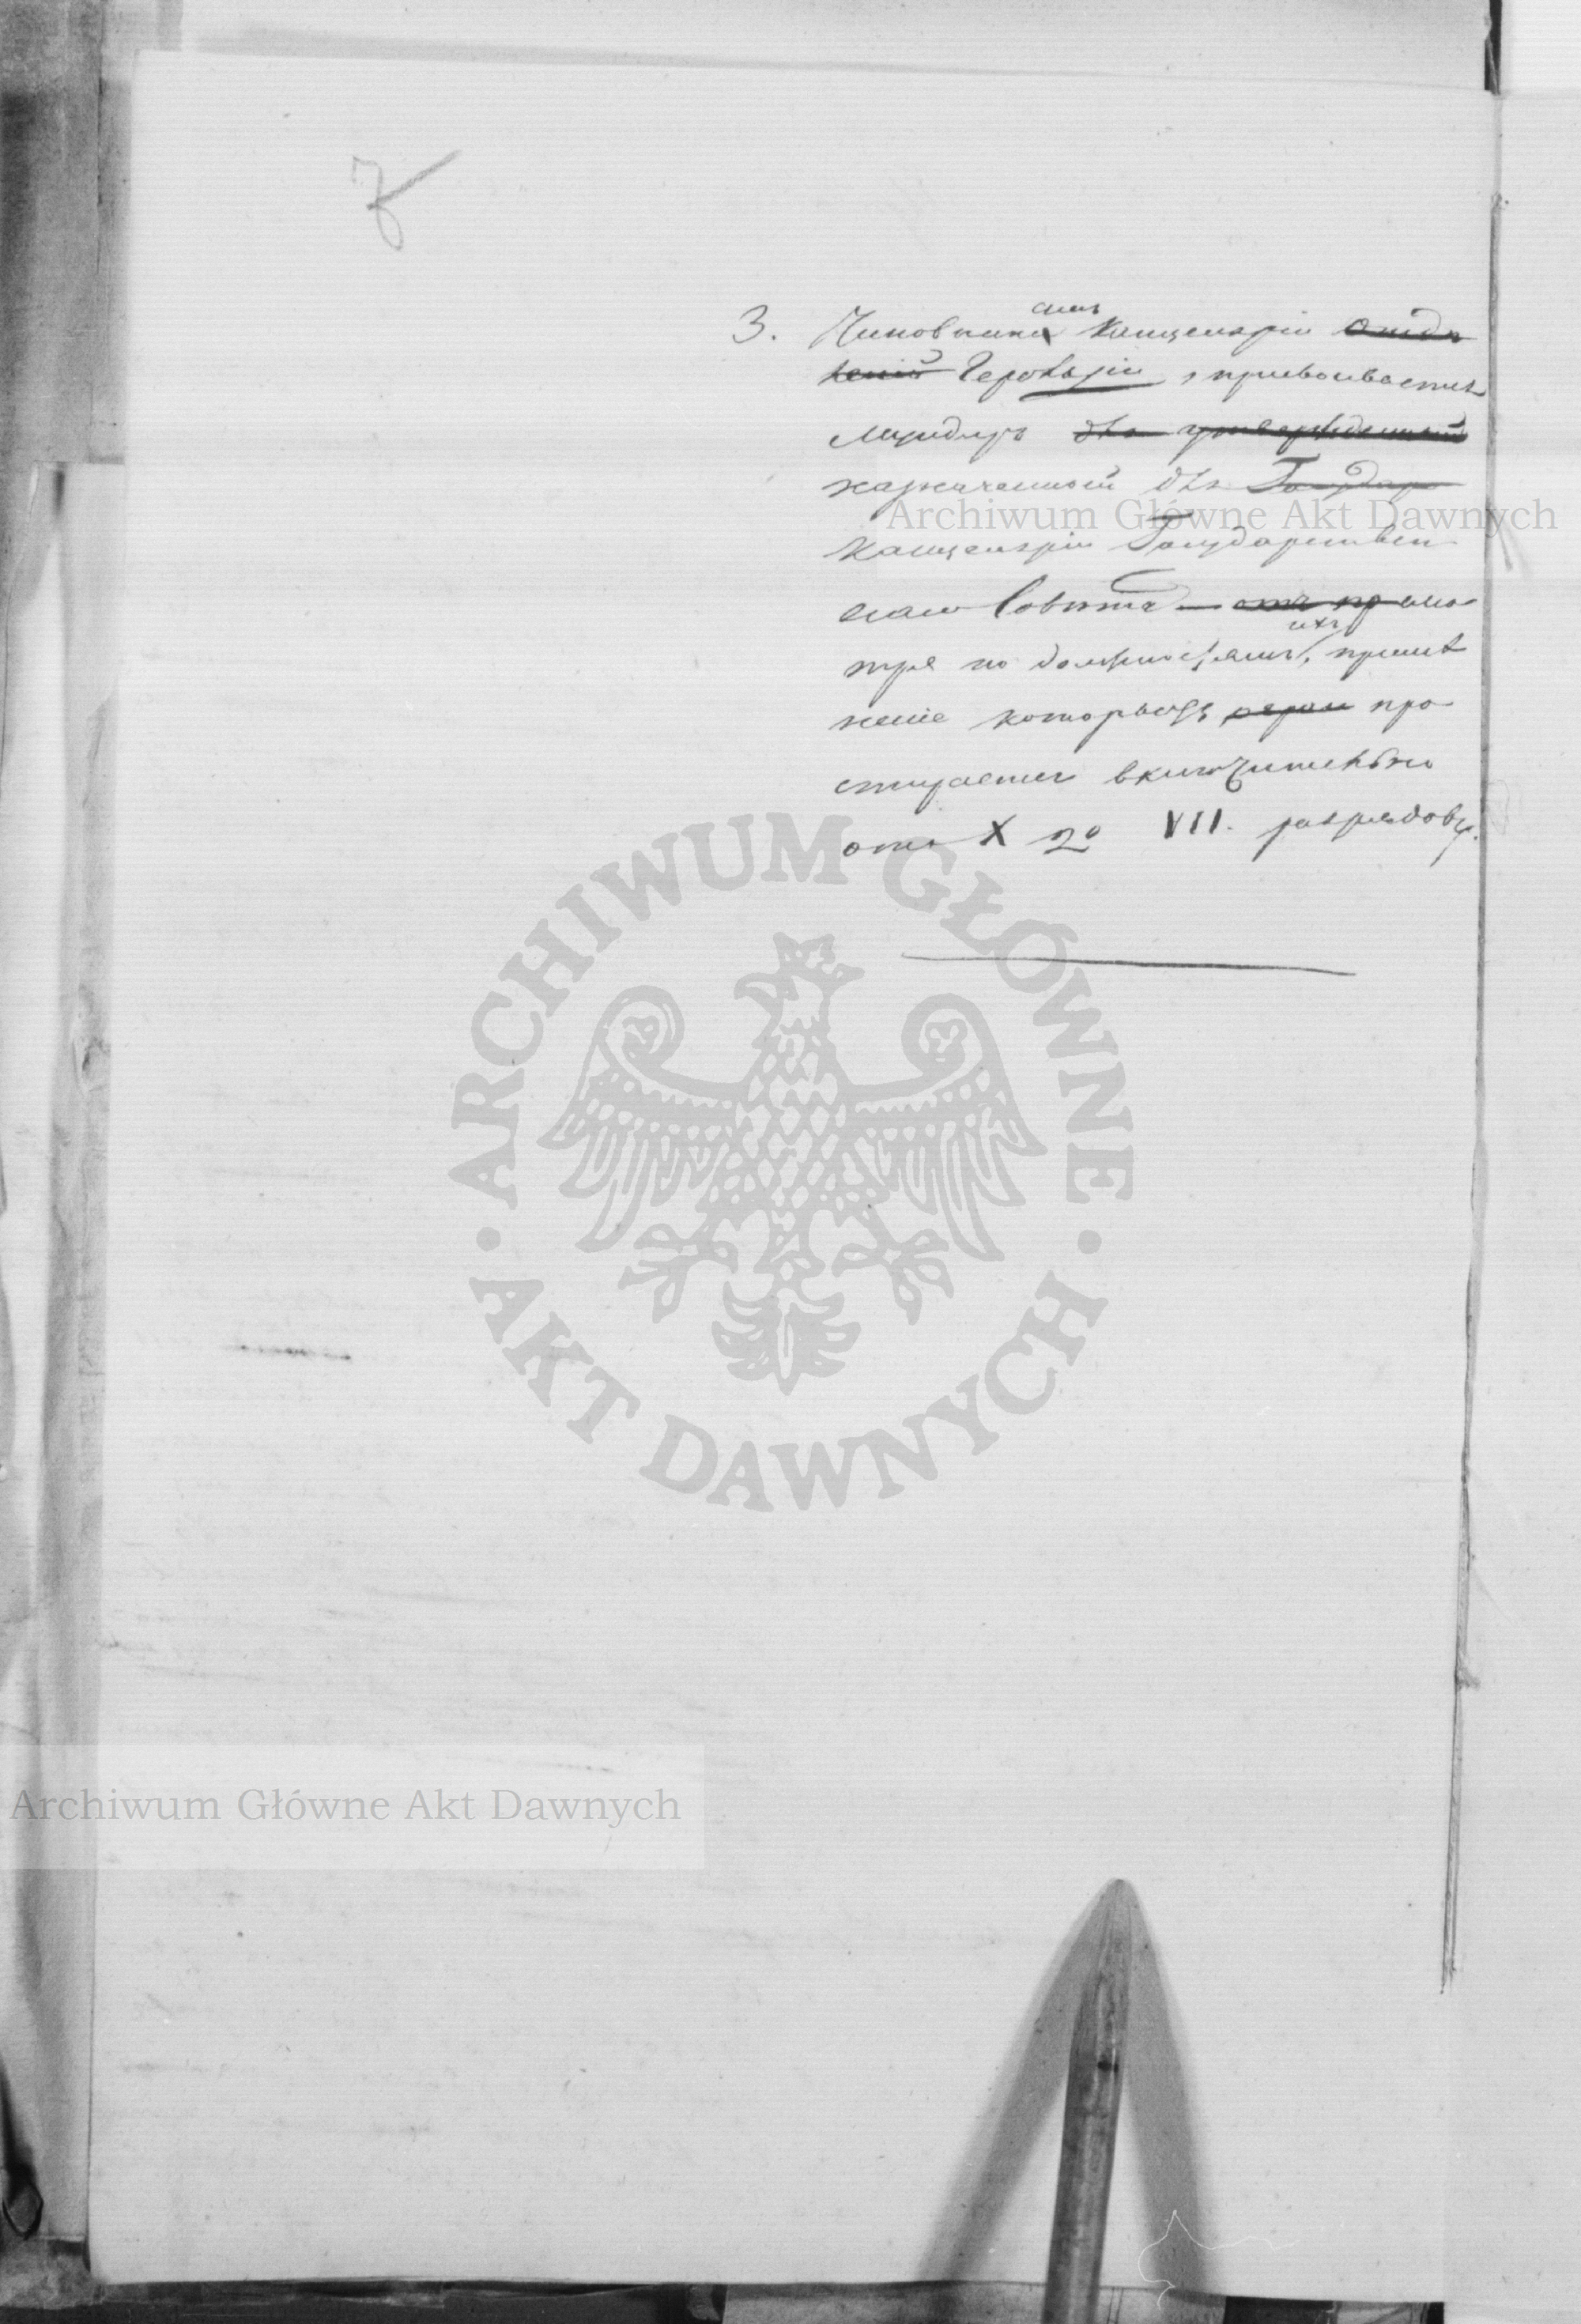 3. Чиновникамъ Канцеляріи Отдѣ
леній Герольдіи, присвоивается
мундиръ для утвержденный
назначенный для Государ
Канцеляріи Государствен
наго Совѣта смо
тря по должностямъ ихъ, примѣ
неніе которыхъ про
стирается включительно
отъ X до VII. разрядовъ.
Archiwum Główne Akt Dawnych
ARCHIWUM GŁÓWNE AKT DAWNYCH
Archiwum Główne Akt Dawnych